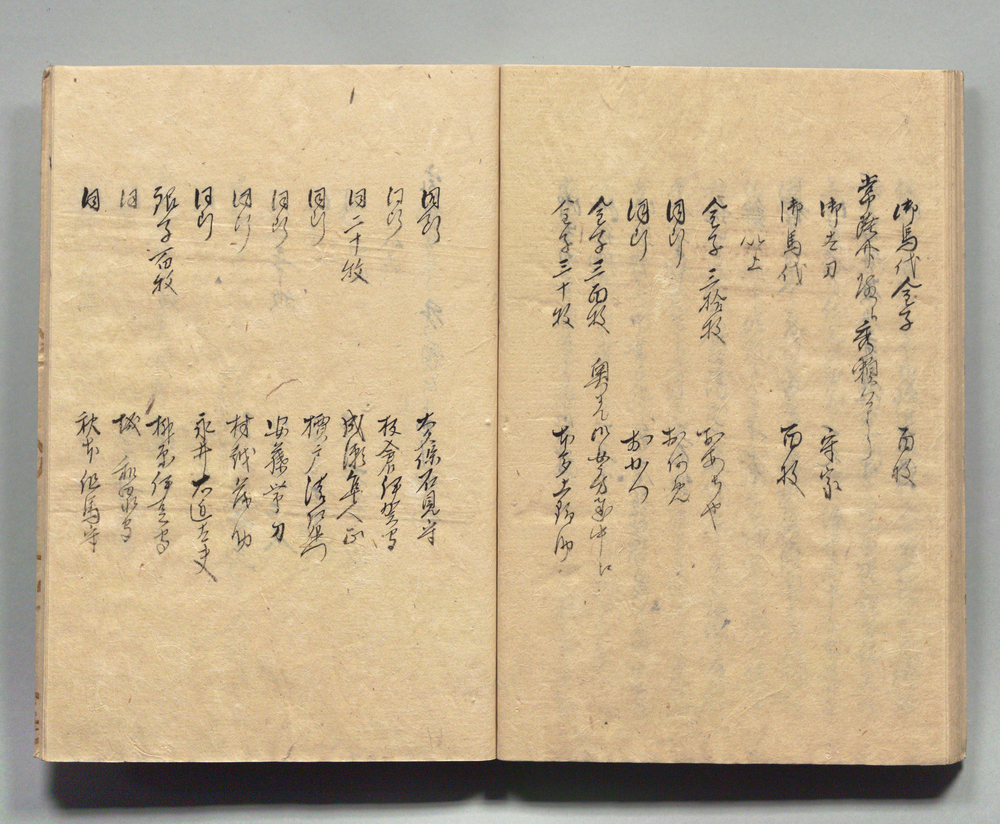 御馬代金子 百枚
常陸介殿へ秀頼公より
御太刀 守家
御馬代 百枚
以上
金子三拾枚 おあちや
同断 お何
同断 おかつ
金子三百枚 奥方御女房衆中に
金子三十枚 本多上野助
同断 大久保石見守
同断 板倉伊賀守
同二十枚 成瀬隼人正
同断 横戸
同断 安藤帯刀
同断 村越茂助
同断 永井右近太夫
銀子百枚 柳原伊豆守
同 城和泉守
同 秋本但馬守